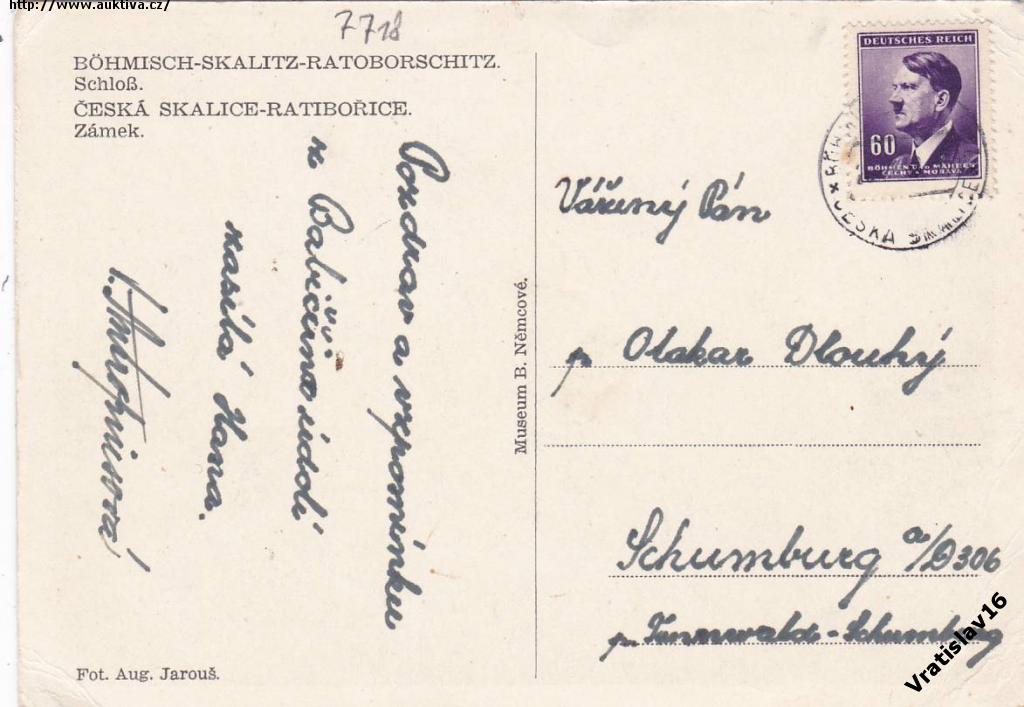 http://www.auktiva.cz/
7718
BÖHMISCH-SKALITZ-RATOBORSCHITZ.
Schloß.
ČESKÁ SKALICE-RATIBOŘICE.
Zámek.
Pozdrav a vzpomínku
z Babiččina údolí
zasílá Hana.
Museum B. Němcové.
Fot. Aug. Jarouš.
DEUTSCHES REICH
60
BÖHMEN U. MÄHREN
ČECHY A MORAVA
ČESKÁ SKALICE
Vážený Pán
p. Otakar Dlouhý
Schumburg a/D 306
p. Tannwald-Schumburg
Vratislav16